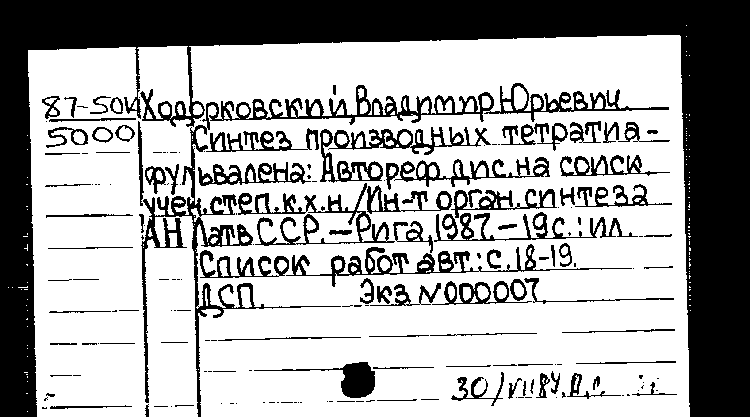 87-50к Ходорковский, Владимир Юрьевич
5000 Синтез производных тетратиа-
фульвалена: Автореф. дис. на соиск.
учен. степ. к.х.н. / Ин-т орган. синтеза
АН Латв ССР. — Рига, 1987. — 19 с.: ил.
Список работ авт.: с. 18-19.
ДСП. Экз N000007.